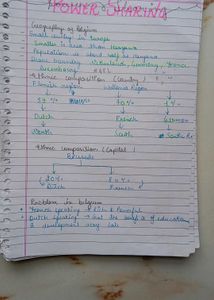 POWER SHARING
Geography of Belgium
Small country in Europe
Smaller in area than Haryana
Population is about half of Haryana
Share boundary → Netherlands, Germany, France
Luxembourg
Ethnic composition (Country)
Flemish region Wallonia Region
59% 40% 1%
Dutch French German
North South
Ethnic composition (Capital)
Brussels
20% 80%
Dutch French
Problem in Belgium
French speaking → Rich & Powerful
Dutch speaking → got the benefit of education
& development very late